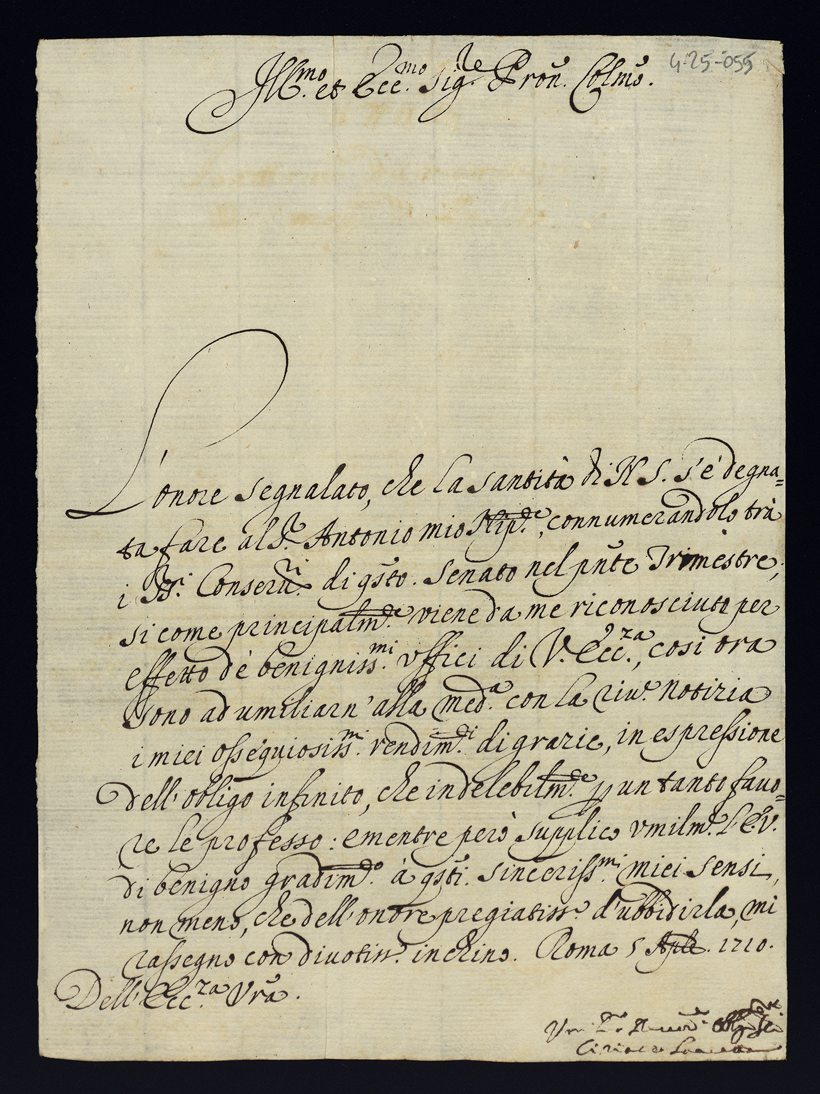 4-25-055
Ill.mo et Ecc.mo Sig.re Pron. Colmo.
L'onore segnalato, che la santità di N S. s'è degna=
ta fare al S.r Antonio mio Nip.e, connumerandolo trà
i SS.ri Conserv.ri di gsto. Senato nel pnte Trimestre;
si come principalm.te viene da me riconosciuto per
effetto dè benigniss.mi uffici di V. Ecc.za, così ora
sono ad umiliarn' alla med.a con la riu.e notizia
i miei osseguiosiss.mi rendim.ti di grazie, in espressione
dell' obligo infinito, che indelebilm.te p un tanto favo=
re le professo: e mentre però supplico vmilm.e l'E.V.
di benigno gradim.to à gsti. sinceriss.mi miei sensi,
non meno, che dell' onore pregiatiss.o d'ubbidirla, mi
rassegno con divotiss.o inchino. Roma 5 Aple. 1710.
Dell' Ecc.za Vra.